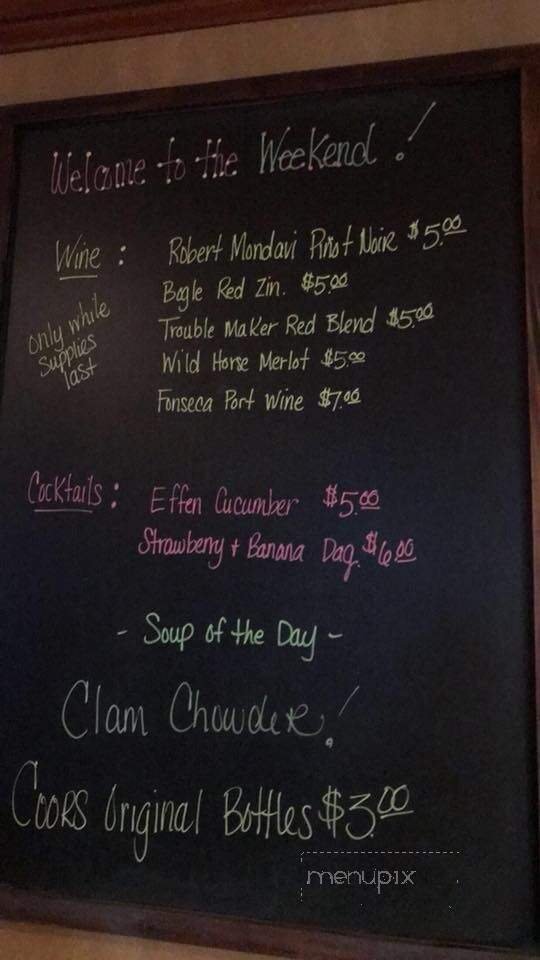 Welcome to the Weekend!
Wine : Robert Mondavi Pinot Noir $5.00
Bogle Red Zin. $5.00
Trouble Maker Red Blend $5.00
Wild Horse Merlot $5.00
Fonseca Port Wine $7.00
only while
supplies
last
Cocktails : Effen Cucumber $5.00
Strawberry + Banana Daq. $6.00
- Soup of the Day -
Clam Chowder!
Coors Original Bottles $3.00
menupix